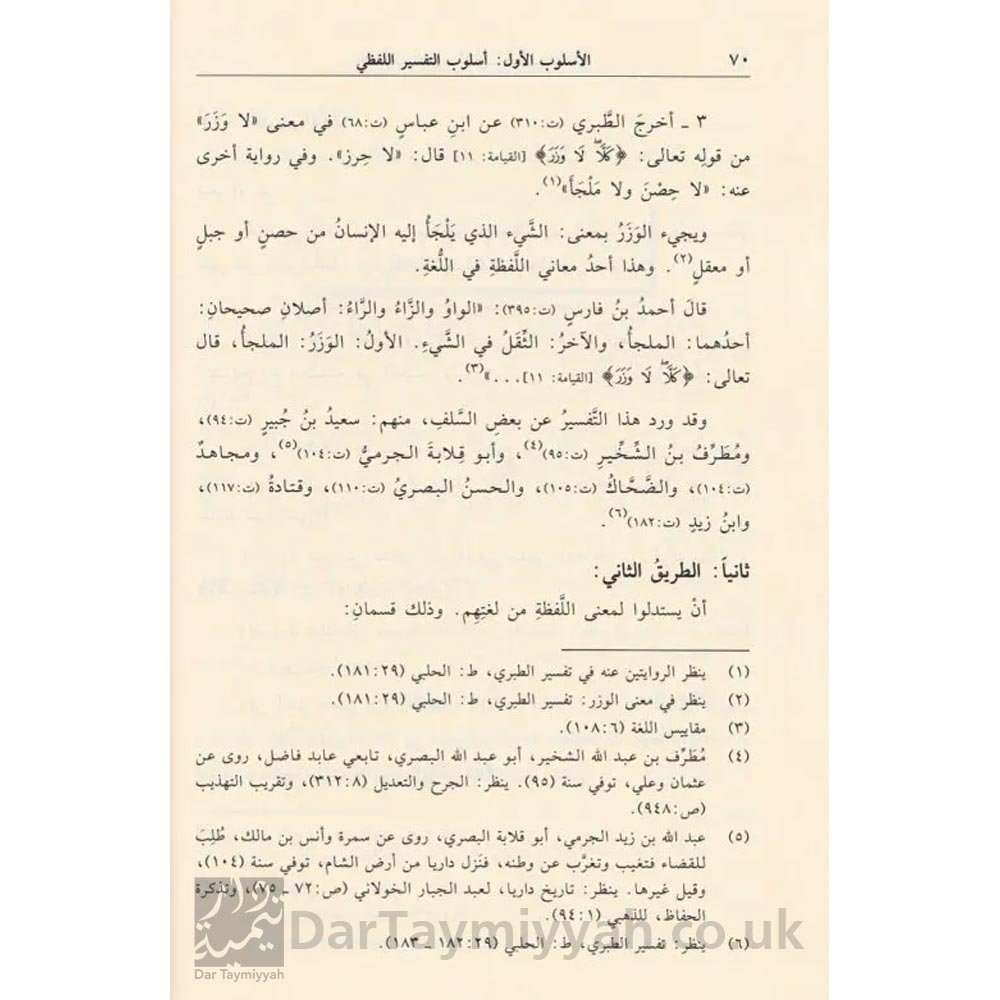 ٧٠ الأسلوب الأول: أسلوب التفسير اللفظي
٣ ـ أخرجَ الطَّبري (ت:٣١٠) عن ابنِ عباسٍ (ت:٦٨) في معنى «لا وَزَرَ»
من قولِه تعالى: ﴿كَلَّا لَا وَزَرَ﴾ [القيامة: ١١] قال: «لا حِرز». وفي رواية أخرى
عنه: «لا حِصْنَ ولا مَلْجَأَ»(١).
ويجيء الوَزَرُ بمعنى: الشَّيء الذي يَلْجَأُ إليه الإنسانُ من حصنٍ أو جبلٍ
أو معقلٍ(٢). وهذا أحدُ معاني اللَّفظةِ في اللُّغةِ.
قالَ أحمدُ بنُ فارسٍ (ت:٣٩٥): «الواوُ والزَّاءُ والرَّاءُ: أصلانِ صحيحانِ:
أحدُهما: الملجأُ، والآخرُ: الثِّقَلُ في الشَّيءِ. الأولُ: الوَزَرُ: الملجأُ، قال
تعالى: ﴿كَلَّا لَا وَزَرَ﴾ [القيامة: ١١]...»(٣).
وقد ورد هذا التَّفسيرُ عن بعضِ السَّلفِ، منهم: سعيدُ بنُ جُبيرٍ (ت:٩٤)،
ومُطَرِّفُ بنُ الشِّخِّيرِ (ت:٩٥)(٤)، وأبو قِلابةَ الجرميُّ (ت:١٠٤)(٥)، ومجاهدٌ
(ت:١٠٤)، والضَّحَّاكُ (ت:١٠٥)، والحسنُ البصريُّ (ت:١١٠)، وقتادةُ (ت:١١٧)،
وابنُ زيدٍ (ت:١٨٢)(٦).
ثانياً: الطريقُ الثاني:
أنْ يستدلوا لمعنى اللَّفظةِ من لغتِهِم. وذلك قسمانِ:
(١) ينظر الروايتين عنه في تفسير الطبري، ط: الحلبي (٢٩:١٨١).
(٢) ينظر في معنى الوزر: تفسير الطبري، ط: الحلبي (٢٩:١٨١).
(٣) مقاييس اللغة (٦:١٠٨).
(٤) مُطَرِّف بن عبد الله الشخير، أبو عبد الله البصري، تابعي عابد فاضل، روى عن
عثمان وعلي، توفي سنة (٩٥). ينظر: الجرح والتعديل (٨:٣١٢)، وتقريب التهذيب
(ص:٩٤٨).
(٥) عبد الله بن زيد الجرمي، أبو قلابة البصري، روى عن سمرة وأنس بن مالك، طُلِبَ
للقضاء فتغيب وتغرَّب عن وطنه، فنَزل داريا من أرض الشام، توفي سنة (١٠٤)،
وقيل غيرها. ينظر: تاريخ داريا، لعبد الجبار الخولاني (ص:٧٢ ـ ٧٥)، وتذكرة
الحفاظ، للذهبي (١:٩٤).
(٦) ينظر: تفسير الطبري، ط: الحلبي (٢٩:١٨٢ ـ ١٨٣).
دار تيمية
Dar Taymiyyah
DarTaymiyyah.co.uk